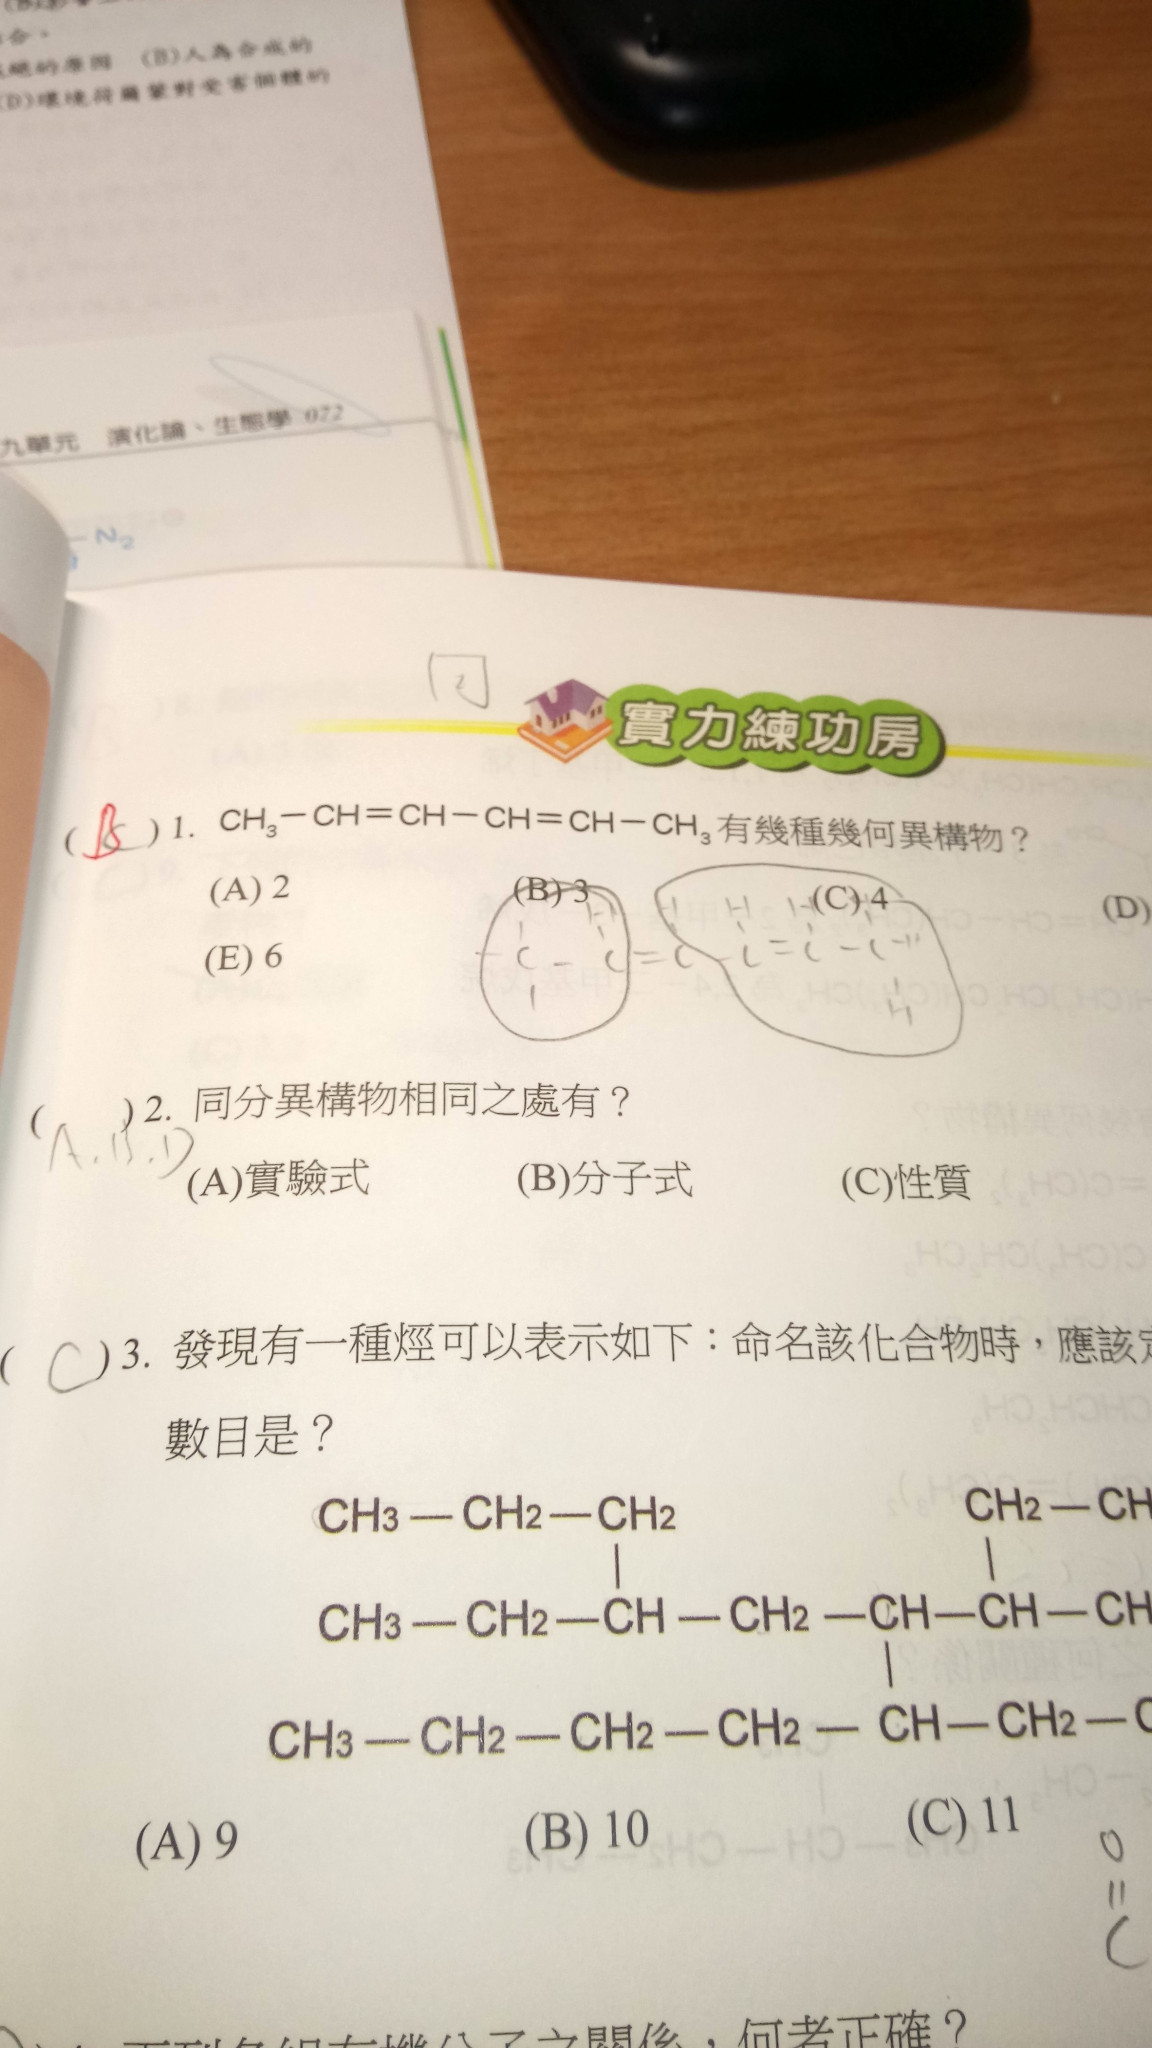 絕的原因 (B)人為合成的
(D)環境荷爾蒙對受害個體的
九單元 演化論、生態學 072
2
實力練功房
( B ) 1. CH₃－CH＝CH－CH＝CH－CH₃有幾種幾何異構物？
(A) 2 (B) 3 (C) 4 (D)
(E) 6
( A.B.D ) 2. 同分異構物相同之處有？
(A)實驗式 (B)分子式 (C)性質
( C ) 3. 發現有一種烴可以表示如下：命名該化合物時，應該定
數目是？
CH3－CH2－CH2 CH2－CH
CH3－CH2－CH－CH2－CH－CH－CH
CH3－CH2－CH2－CH2－CH－CH2－C
(A) 9 (B) 10 (C) 11
O
=
C
下列各組有機分子之關係，何者正確？